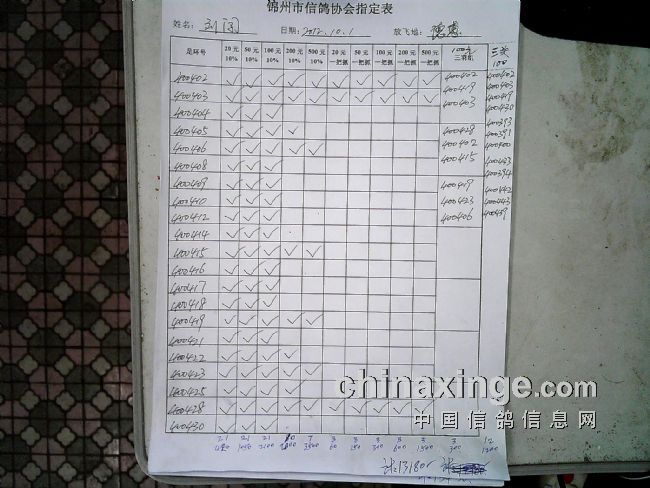 锦州市信鸽协会指定表
姓名: 日期: 2012.10.1 放飞地:
足环号 20元10% 50元10% 100元10% 200元10% 500元10% 20元一把抓 50元一把抓 100元一把抓 200元一把抓 500元一把抓 100元三羽组 三羽100
400402 ✓ ✓ ✓ ✓ ✓ ✓ ✓ ✓ ✓ ✓ 400402 400402
400403 ✓ ✓ ✓ ✓ ✓ ✓ ✓ ✓ ✓ ✓ 400419 400403
400404 ✓ ✓ ✓ 400403 400419
400405 ✓ ✓ ✓ ✓ 400428
400406 ✓ ✓ ✓ ✓ ✓ 400402
400408 ✓ ✓ ✓ 400415
400409 ✓ ✓ ✓ 400419
400410 ✓ ✓ ✓ 400423
400412 ✓ ✓ ✓ 400406
400414 ✓ ✓ ✓
400415 ✓ ✓ ✓ ✓ ✓
400416 ✓ ✓ ✓
400417 ✓ ✓ ✓
400418 ✓ ✓ ✓
400419 ✓ ✓ ✓ ✓ ✓
400421 ✓ ✓ ✓
400422 ✓ ✓ ✓ ✓
400423 ✓ ✓ ✓ ✓ ✓
400425 ✓ ✓ ✓
400428 ✓ ✓ ✓ ✓ ✓
400430 ✓ ✓ ✓
21 21 21 10 7 3 3 3 3 3 3 12
420 1050 2100 3500 60 150 300 600 1500 300 1200
计:13180
chinaxinge.com
中国信鸽信息网